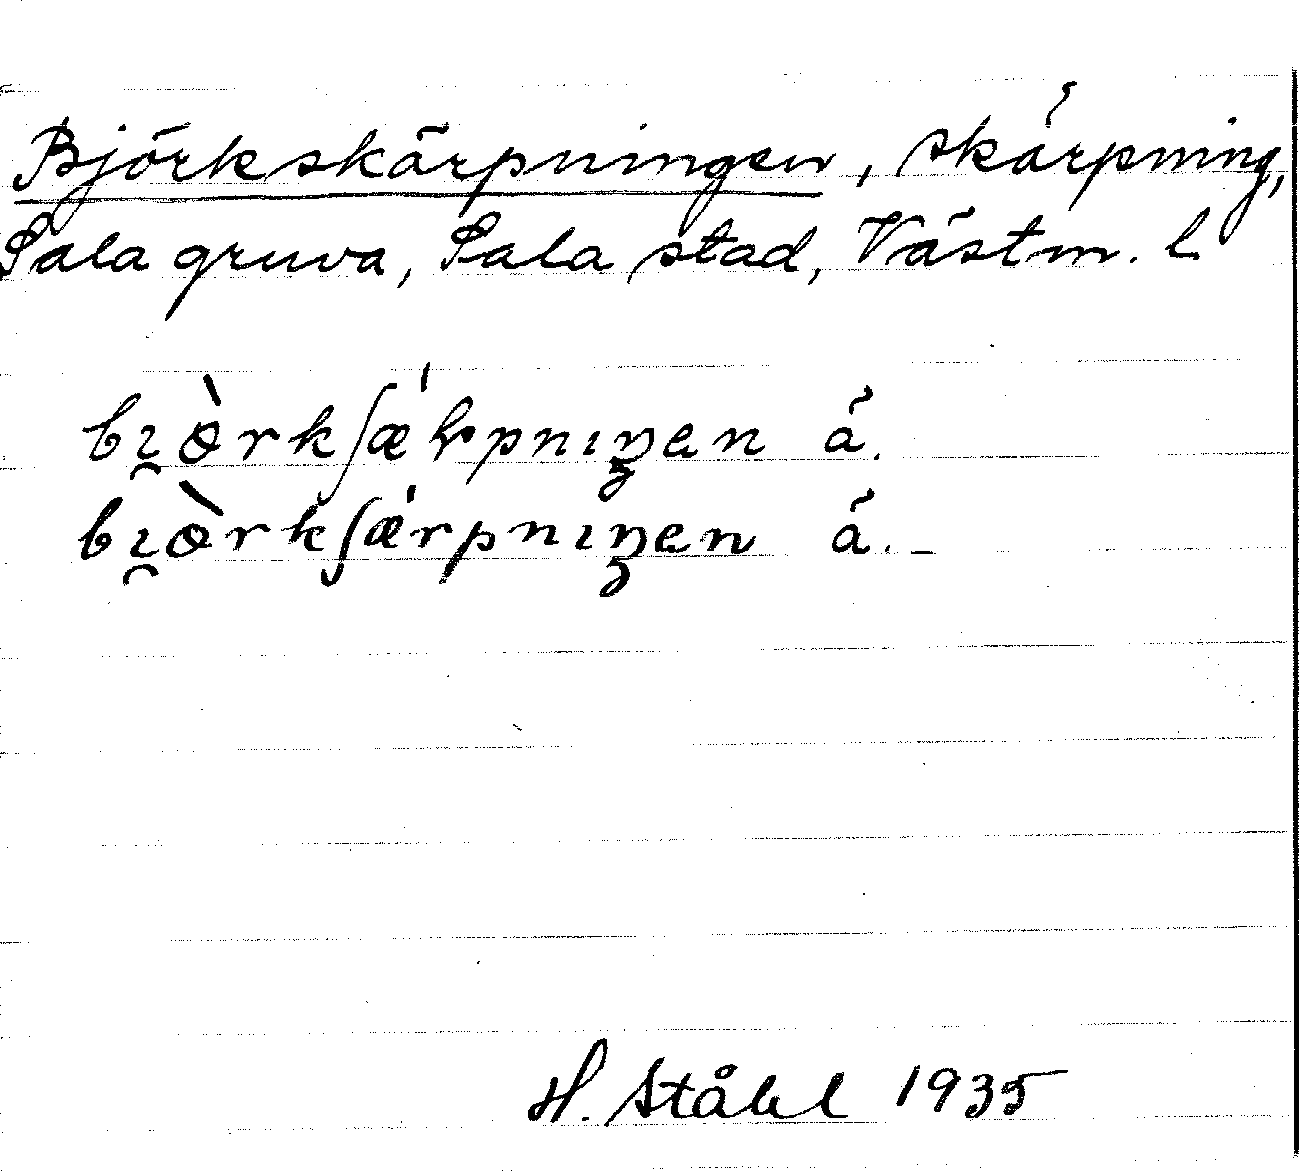 Björkskärpningen, skärpning,
Sala gruva, Sala stad, Västm. l
bi̯ò̈rkʃæ̍ɽpnɩŋen ä.
bi̯ò̈rkʃæ̍rpnɩŋen ä. –
H. Ståhl 1935